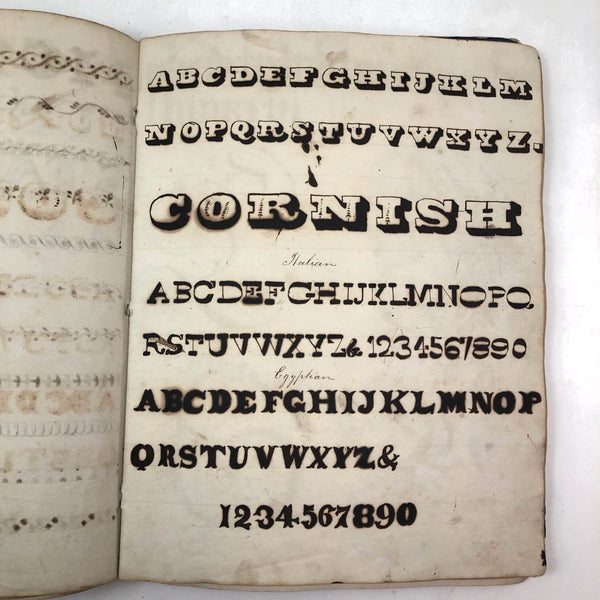 ABCDEFGHIJKLM
NOPQRSTUVWXYZ.
CORNISH
Italian
ABCDEFGHIJKLMNOPQ
RSTUVWXYZ& 1234567890
Egyptian
ABCDEFGHIJKLMNOP
QRSTUVWXYZ&
1234567890